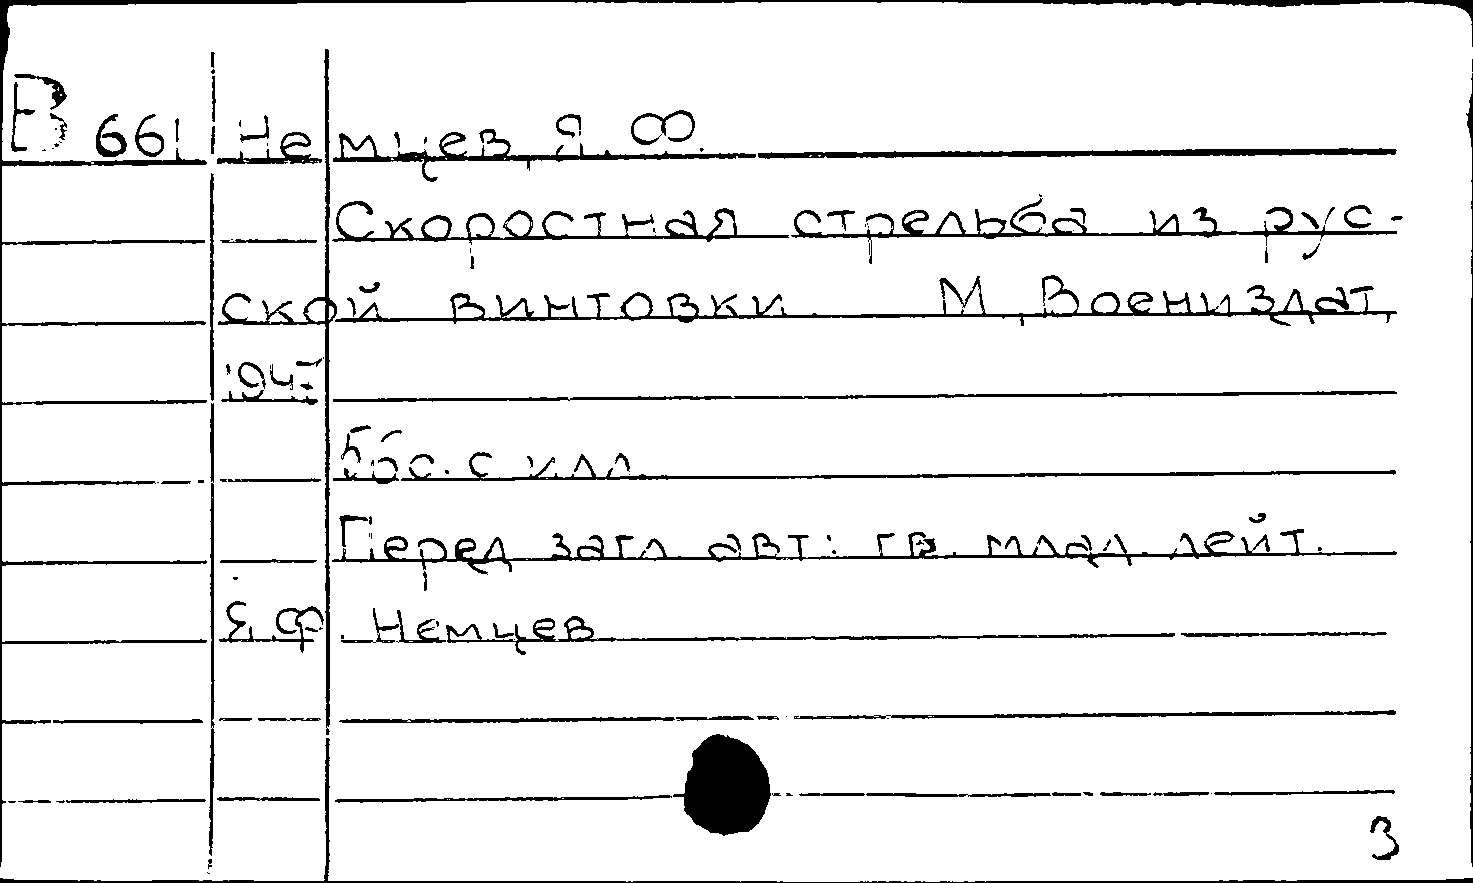 В 661 Немцев, Я. Ф.
Скоростная стрельба из рус-
ской винтовки. М., Воениздат,
56с. с илл.
Перед загл. авт: гв. млад. лейт.
Я. Ф. Немцев
3